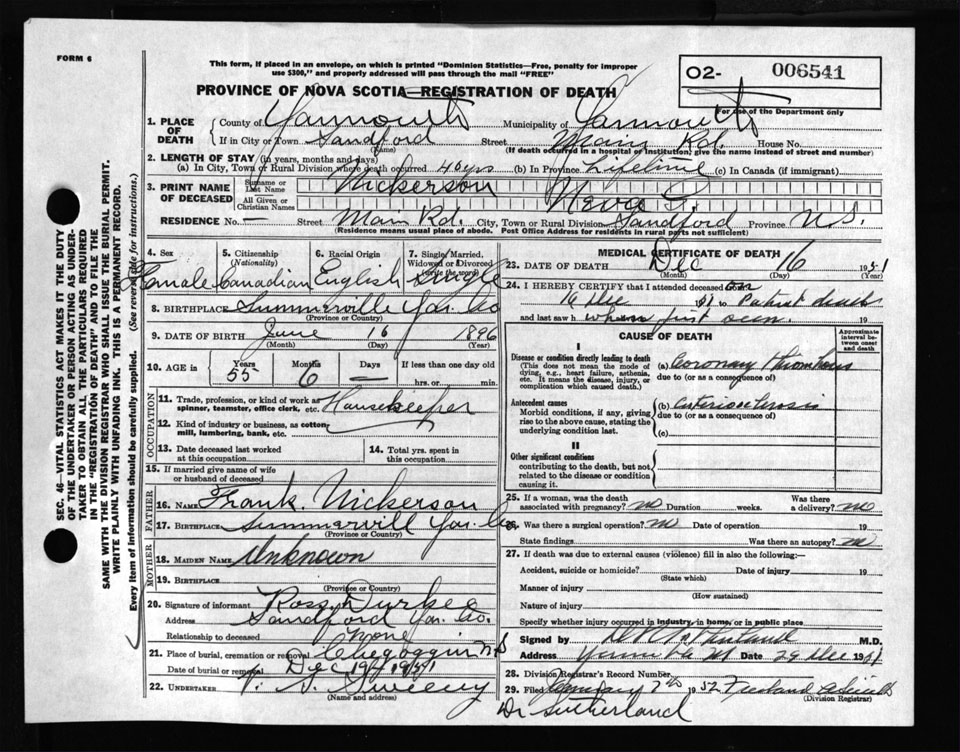 FORM 6
This form, if placed in an envelope, on which is printed "Dominion Statistics—Free, penalty for improper
use $300," and properly addressed will pass through the mail "FREE"
O2- 006541
For use of the Department only
PROVINCE OF NOVA SCOTIA—REGISTRATION OF DEATH
1. PLACE OF DEATH
County of Yarmouth Municipality of Yarmouth
If in City or Town Sandford Street Main Rd. House No.
(Name) (If death occurred in a hospital or institution, give the name instead of street and number)
2. LENGTH OF STAY (in years, months and days)
(a) In City, Town or Rural Division where death occurred 40 yrs (b) In Province Lifetime (c) In Canada (if immigrant)
3. PRINT NAME OF DECEASED
Surname or Last Name Nickerson
All Given or Christian Names Neva G.
RESIDENCE No. — Street Main Rd. City, Town or Rural Division Sandford Province N.S.
(Residence means usual place of abode. Post Office Address for residents in rural parts not sufficient)
4. Sex Female
5. Citizenship (Nationality) Canadian
6. Racial Origin English
7. Single, Married, Widowed or Divorced (write the word) Single
8. BIRTHPLACE Summerville Yar. Co
(Province or Country)
9. DATE OF BIRTH June 16 1896
(Month) (Day) (Year)
10. AGE in Years 55 Months 6 Days — If less than one day old
hrs. or min.
OCCUPATION
11. Trade, profession, or kind of work as
spinner, teamster, office clerk, etc. Housekeeper
12. Kind of industry or business, as cotton-
mill, lumbering, bank, etc.
13. Date deceased last worked
at this occupation
14. Total yrs. spent in
this occupation
15. If married give name of wife
or husband of deceased
FATHER
16. NAME Frank Nickerson
17. BIRTHPLACE Summervill Yar. Co.
(Province or Country)
MOTHER
18. MAIDEN NAME Unknown
19. BIRTHPLACE
(Province or Country)
20. Signature of informant Ross Durkee
Address Sandford Yar. Co.
Relationship to deceased none
21. Place of burial, cremation or removal Chegoggin N.S
Date of burial or removal Dec 19/1951
22. UNDERTAKER V. S. Sweeny
(Name and address)
MEDICAL CERTIFICATE OF DEATH
23. DATE OF DEATH Dec 16 1951
(Month) (Day) (Year)
24. I HEREBY CERTIFY that I attended deceased
16 Dec 1951 to
and last saw h when first seen. 19
CAUSE OF DEATH
Approximate interval between onset and death
I
Disease or condition directly leading to death
(This does not mean the mode of
dying, e.g., heart failure, asthenia,
etc. It means the disease, injury, or
complication which caused death.)
(a) Coronary Thrombosis
due to (or as a consequence of)
Antecedent causes
Morbid conditions, if any, giving
rise to the above cause, stating the
underlying condition last.
(b) Arteriosclerosis
due to (or as a consequence of)
(c)
II
Other significant conditions
contributing to the death, but not
related to the disease or condition
causing it.
25. If a woman, was the death
associated with pregnancy? no Duration weeks. Was there a delivery? no
26. Was there a surgical operation? no Date of operation 19
State findings Was there an autopsy? no
27. If death was due to external causes (violence) fill in also the following:—
Accident, suicide or homicide? Date of injury 19
(State which)
Manner of injury
(How sustained)
Nature of injury
Specify whether injury occurred in industry, in home, or in public place
Signed by M.D.
Address Yarmouth Date 29 Dec 1951
28. Division Registrar's Record Number
29. Filed January 7th 1952
(Division Registrar)
Dr Sutherland
SEC. 46—VITAL STATISTICS ACT MAKES IT THE DUTY
OF THE UNDERTAKER OR PERSON ACTING AS UNDER-
TAKER TO OBTAIN ALL THE PARTICULARS REQUIRED
IN THE "REGISTRATION OF DEATH" AND TO FILE THE
SAME WITH THE DIVISION REGISTRAR WHO SHALL ISSUE THE BURIAL PERMIT.
WRITE PLAINLY WITH UNFADING INK. THIS IS A PERMANENT RECORD.
Every item of information should be carefully supplied. (See reverse side for instructions.)